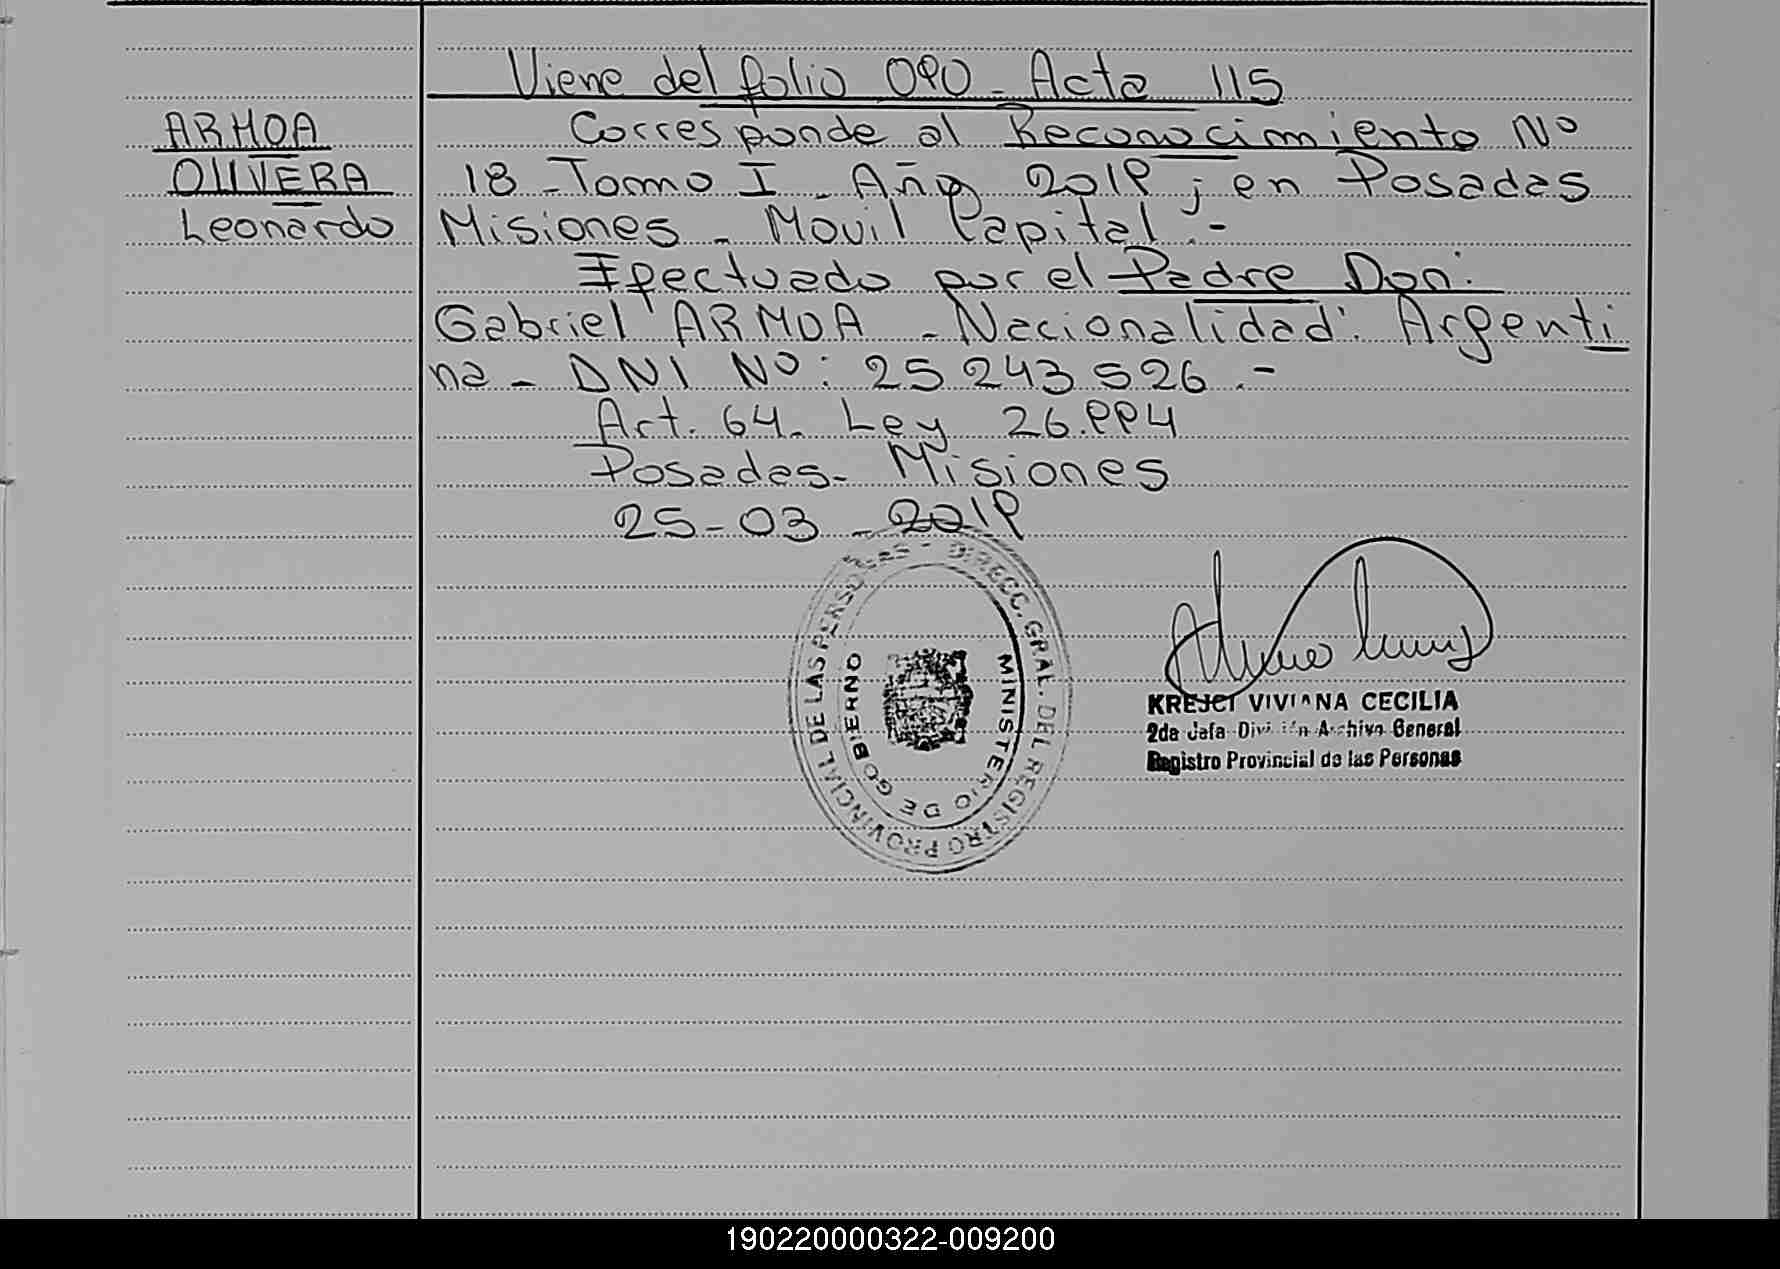 Viene del folio 090 - Acta 115
ARMOA
OLIVERA
Leonardo
Corresponde al Reconocimiento Nº
18 - Tomo I - Año 2019; en Posadas
Misiones - Móvil Capital.-
Efectuado por el Padre Don:
Gabriel ARMOA - Nacionalidad: Argenti
na - DNI Nº: 25 243 526.-
Art. 64. Ley 26.994
Posadas- Misiones
25-03-2019
DIRECC. GRAL. DEL REGISTRO PROVINCIAL DE LAS PERSONAS -
MINISTERIO DE GOBIERNO
KREJCI VIVIANA CECILIA
2da Jefa División Archivo General
Registro Provincial de las Personas
190220000322-009200